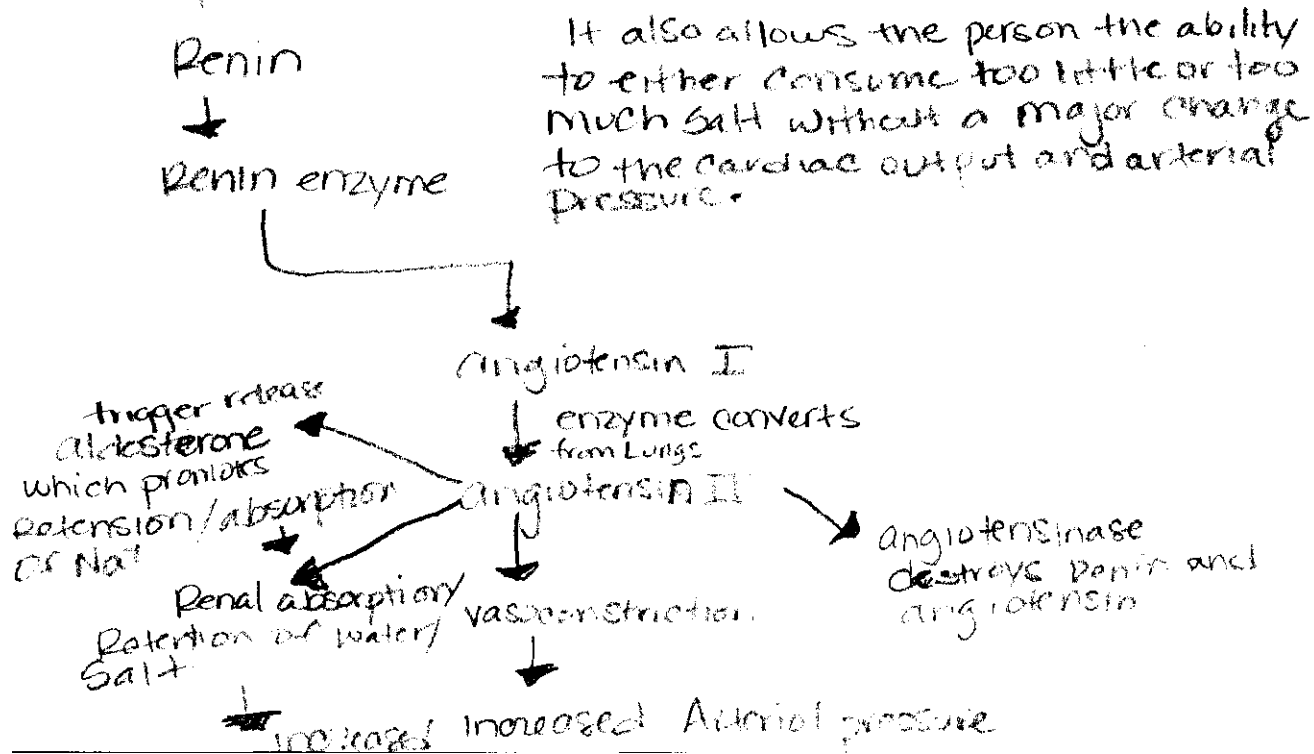 Renin
Renin enzyme
It also allows the person the ability
to either consume too little or too
much salt without a major change
to the cardiac output and arterial
pressure.
angiotensin I
enzyme converts
from Lungs
angiotensin II
trigger release
aldesterone
which promotes
Retension/absorption
of Na+
Renal absorption/
Retention of water/
Salt
vasoconstriction.
angiotensinase
destroys Renin and
angiotensin
increased
Increased Arterial pressure